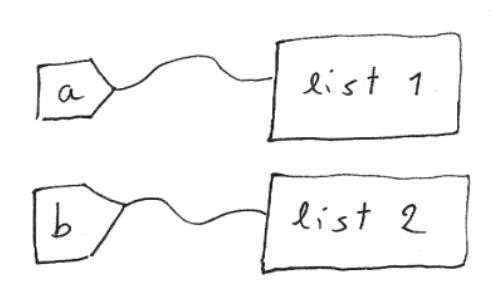 a
list 1
b
list 2